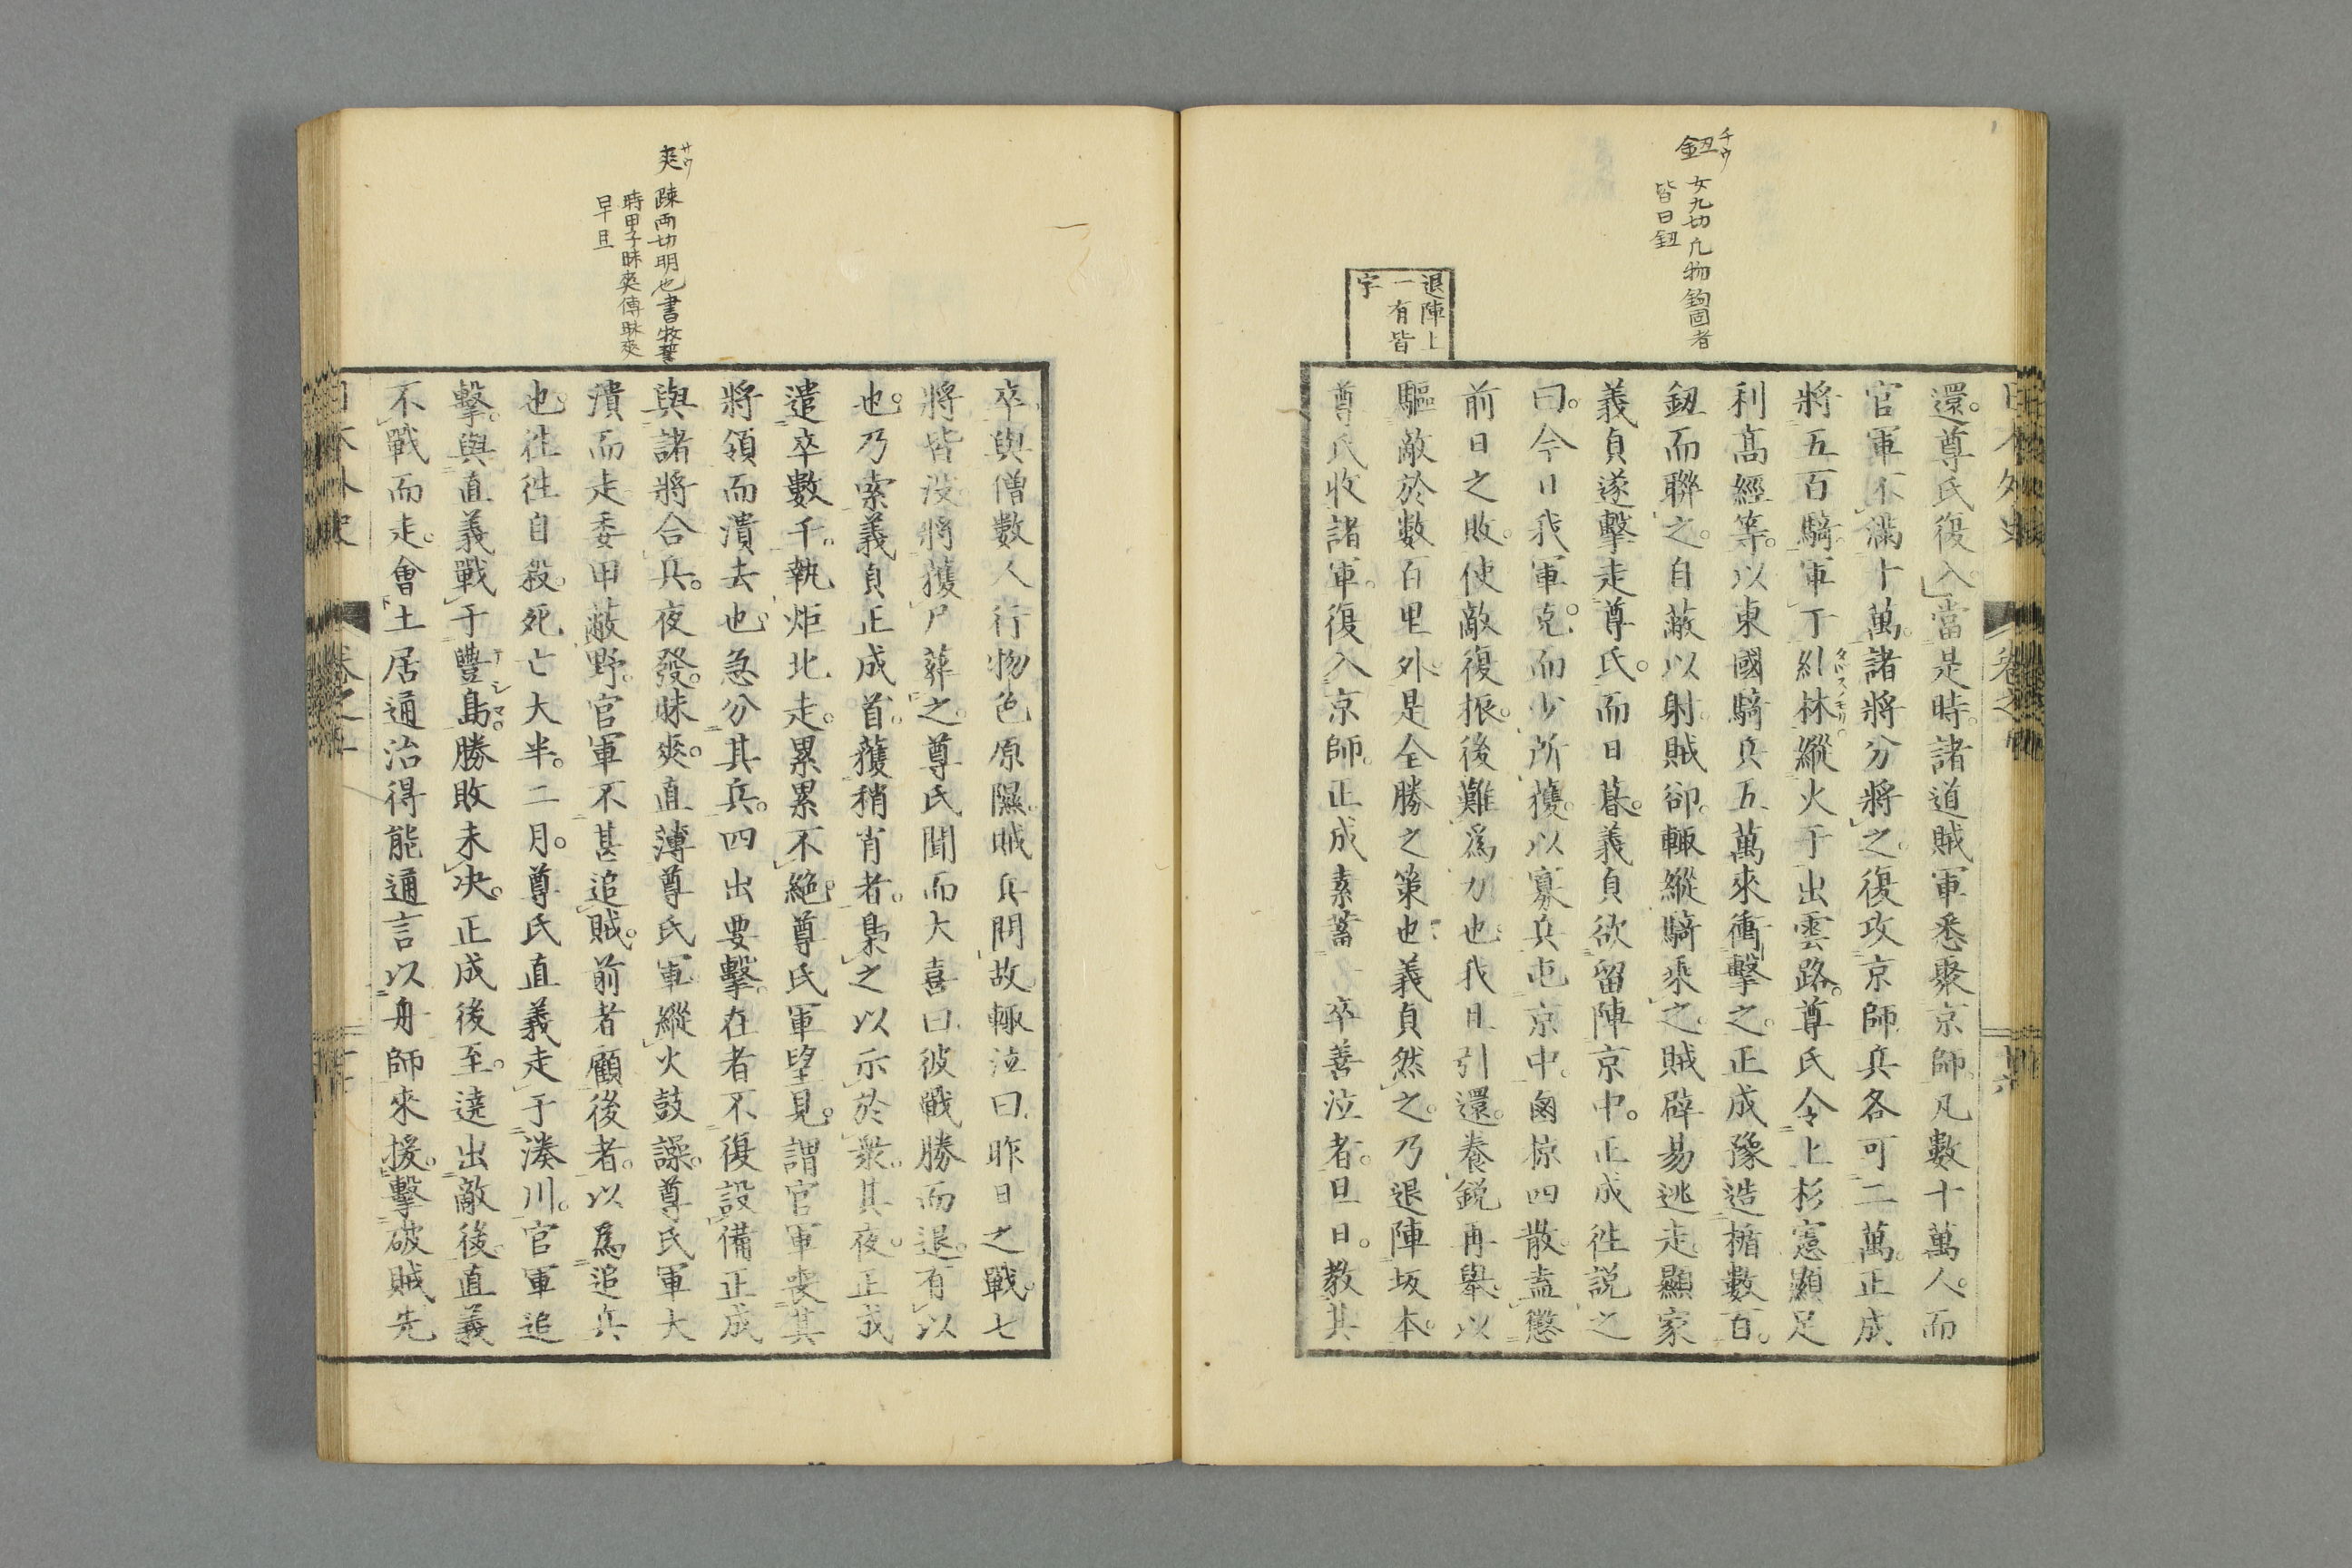 鈕
チウ
女九切凡物鉤固者
皆曰鈕
退陣上
一有皆
字
還。尊氏復入。當是時。諸道賊軍悉聚京師。凡數十萬人。而
官軍不滿十萬。諸將分將之。復攻京師。兵各可二萬。正成
將五百騎。軍于糺林。縱火于出雲路。尊氏令上杉憲顯足
利高經等。以東國騎兵五萬來衝擊之。正成豫造楯數百。
釼而聯之。自蔽以射。賊卻。輙縱騎乘之。賊辟易逃走。顯家
義貞遂擊走尊氏。而日暮。義貞欲留陣京中。正成徃說之
曰。今日我軍克。而少所獲。以寡兵屯京中。鹵掠四散。盍懲
前日之敗。使敵復振。後難爲力也。我且引還。養銳再舉。以
驅敵於數百里外。是全勝之策也。義貞然之。乃退陣坂本。
尊氏收諸軍。復入京師。正成素蓄 卒善泣者。旦日。教其
爽
サウ
踈兩切明也書牧誓
時甲子昧爽傳昧爽
早旦
卒與僧數人行物色原隰。賊兵問故。輙泣曰。昨日之戰。七
將皆沒。將獲尸葬之。尊氏聞而大喜曰。彼戰勝而退。有以
也。乃索義貞正成首。獲稍肖者。梟之以示於衆。其夜。正成
遣卒數千。執炬北走。累累不絶。尊氏軍望見。謂官軍喪其
將領而潰去也。急分其兵。四出要擊。在者不復設備。正成
與諸將合兵。夜發。昧爽。直薄尊氏軍。縱火鼓譟。尊氏軍大
潰而走。委甲蔽野。官軍不甚追。賊。前者顧後者。以爲追兵
也。徃徃自殺。死亡大半。二月。尊氏直義走于湊川。官軍追
擊。與直義戰于豐島。勝敗未决。正成後至。遶出敵後。直義
不戰而走。會土居通治得能通言以舟師來援。擊破賊先